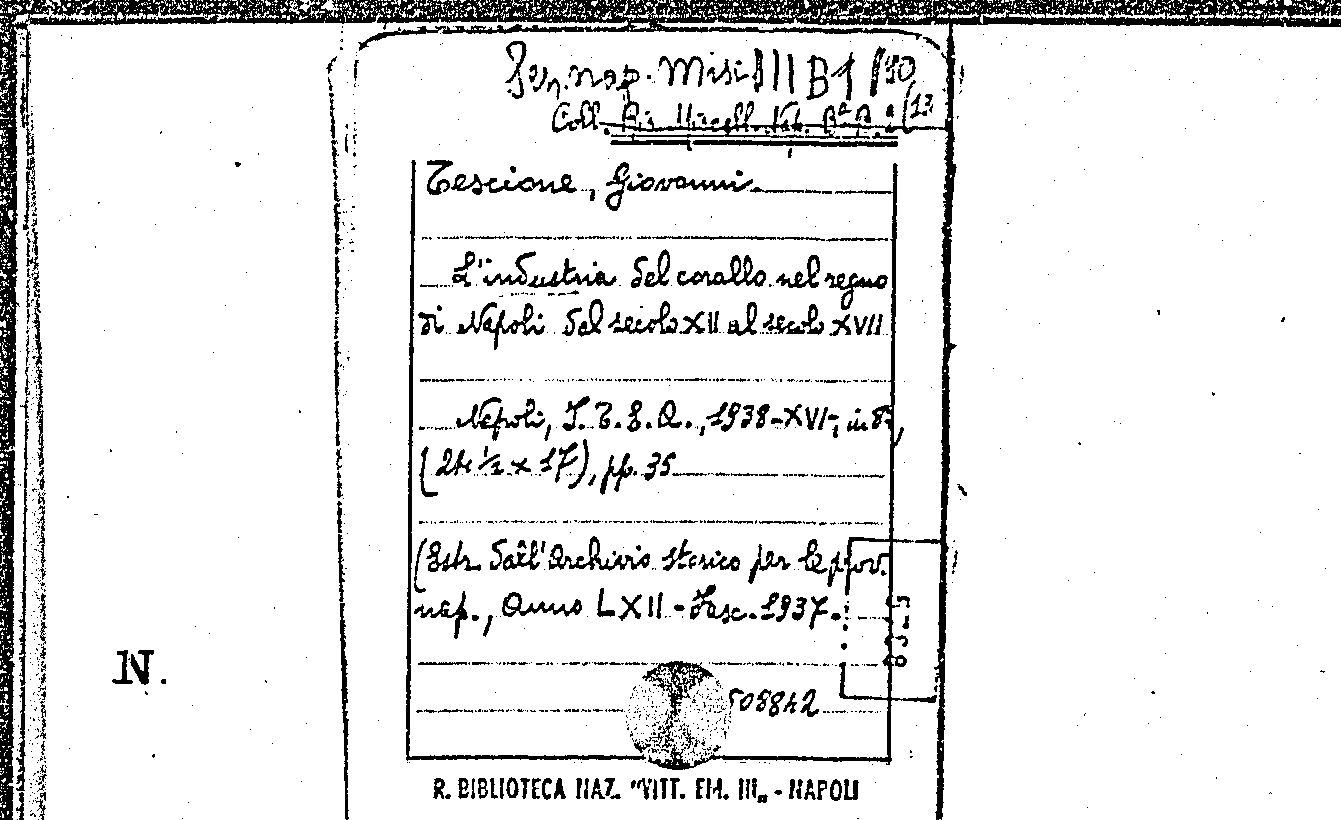 Sez. nap. Misc. III B1 190
Coll. Ris. Miscell. Nap. Bª A. (13
Tescione, Giovanni.
L'industria del corallo nel regno
di Napoli dal secolo XII al secolo XVII
Napoli, I.T.E.A., 1938-XVI-, in 8º,
(24 ½ x 17), pp. 35
(Estr. dall'Archivio storico per le prov.
nap., Anno LXII - Fasc. 1937.
83-5
N.
508842
R. BIBLIOTECA NAZ. "VITT. EM. III„ - NAPOLI